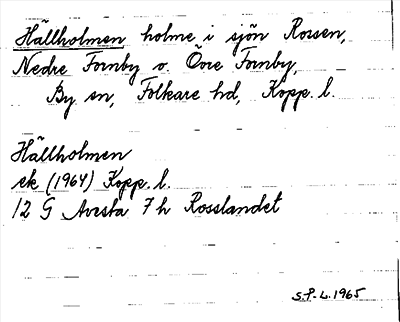 Hällholmen holme i sjön Rossen,
Nedre Fornby o. Övre Fornby,
By sn, Folkare hd, Kopp. l.
Hällholmen
ek (1964) Kopp. l.
12 G Avesta 7 h Rosslandet
S.P-L. 1965